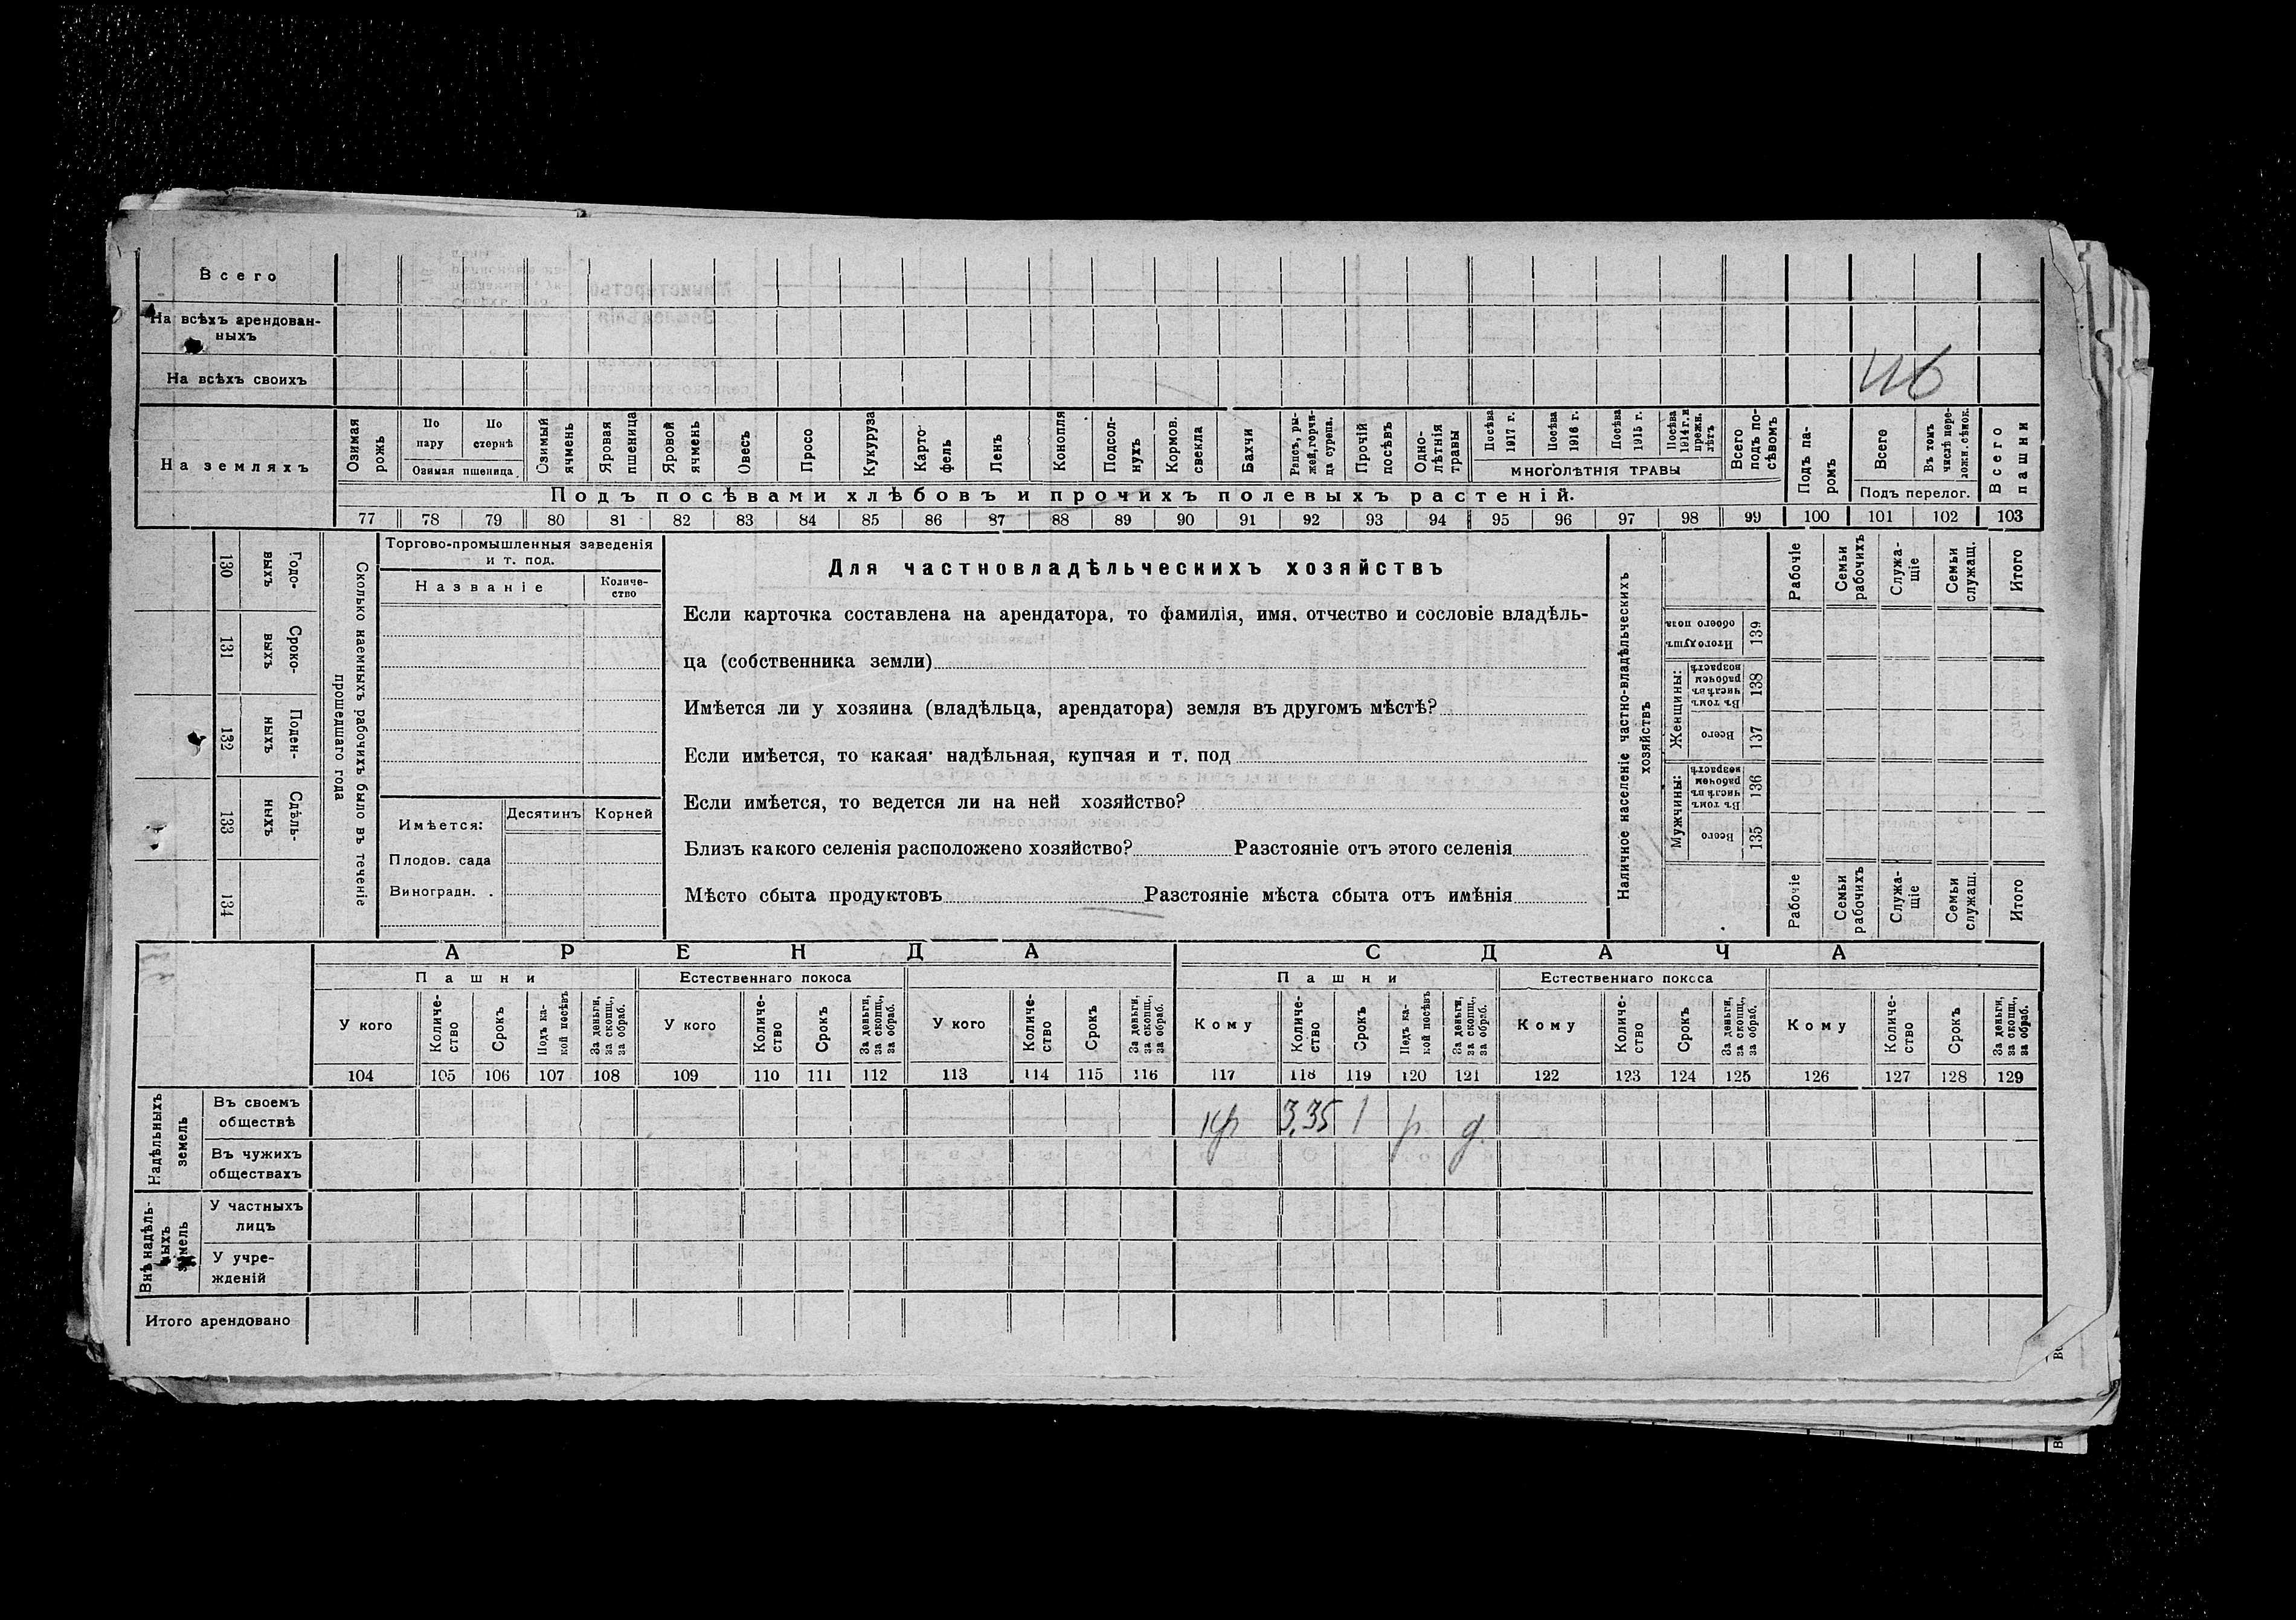 Всего
На всѣхъ арендован-
ныхъ
На всѣхъ своихъ
На земляхъ
Озимая рожь
По пару
По стернѣ
Озимая пшеница
Озимый ячмень
Яровая пшеница
Яровой ячмень
Овесъ
Просо
Кукуруза
Карто-
фель
Ленъ
Конопля
Подсол-
нухъ
Кормов. свекла
Бахчи
Рапсъ, ры-
жей, горчи-
ца сурепа.
Прочій посѣвъ
Одно-
лѣтнія
травы
Посѣва 1917 г.
Посѣва 1916 г.
Посѣва 1915 г.
Посѣва 1914 г. и прежн. лѣтъ
МНОГОЛѢТНІЯ ТРАВЫ
Всего подъ по-
сѣвомъ
Подъ па-
ромъ
Всего
Въ томъ числѣ пере-
ложн. сѣнок.
Подъ перелог.
Всего пашни
Подъ посѣвами хлѣбовъ и прочихъ полевыхъ растеній.
77 78 79 80 81 82 83 84 85 86 87 88 89 90 91 92 93 94 95 96 97 98 99 100 101 102 103
130 Годо-
выхъ
131 Сроко-
выхъ
132 Поден-
ныхъ
133 Сдѣль-
ныхъ
134
Сколько наемныхъ рабочихъ было въ теченіе
прошедшаго года
Торгово-промышленныя заведенія
и т. под.
Названіе
Количе-
ство
Имѣется:
Десятинъ
Корней
Плодов. сада
Виноградн. .
Для частновладѣльческихъ хозяйствъ
Если карточка составлена на арендатора, то фамилія, имя, отчество и сословіе владѣль-
ца (собственника земли)
Имѣется ли у хозяина (владѣльца, арендатора) земля въ другомъ мѣстѣ?
Если имѣется, то какая надѣльная, купчая и т. под
Если имѣется, то ведется ли на ней хозяйство?
Близъ какого селенія расположено хозяйство? Разстояніе отъ этого селенія
Мѣсто сбыта продуктовъ Разстояніе мѣста сбыта отъ имѣнія
Наличное населеніе частно-владѣльческихъ
хозяйствъ
Рабочіе
Семьи рабочихъ
Служа-
щіе
Семьи служащ.
Итого
Итого душъ обоего пола 139
Женщины:
Въ томъ числѣ въ рабочем возрастѣ 138
Всего 137
Мужчины:
Въ томъ числѣ въ рабочем возрастѣ 136
Всего 135
Рабочіе
Семьи рабочихъ
Служа-
щіе
Семьи служащ.
Итого
АРЕНДА
СДАЧА
Пашни
Естественнаго покоса
Пашни
Естественнаго покоса
У кого
Количе-
ство
Срокъ
Подъ ка-
кой посѣвъ
За деньги, за скопщ., за обраб.
У кого
Количе-
ство
Срокъ
За деньги, за скопщ., за обраб.
У кого
Количе-
ство
Срокъ
За деньги, за скопщ., за обраб.
Кому
Количе-
ство
Срокъ
Подъ ка-
кой посѣвъ
За деньги, за скопщ., за обраб.
Кому
Количе-
ство
Срокъ
За деньги, за скопщ., за обраб.
Кому
Количе-
ство
Срокъ
За деньги, за скопщ., за обраб.
104 105 106 107 108 109 110 111 112 113 114 115 116 117 118 119 120 121 122 123 124 125 126 127 128 129
Надѣльныхъ земель
Въ своемъ
обществѣ
кр 3,35 1 р. д.
Въ чужихъ
обществахъ
Внѣ надѣль-
ныхъ земель
У частныхъ
лицъ
У учре-
жденій
Итого арендовано